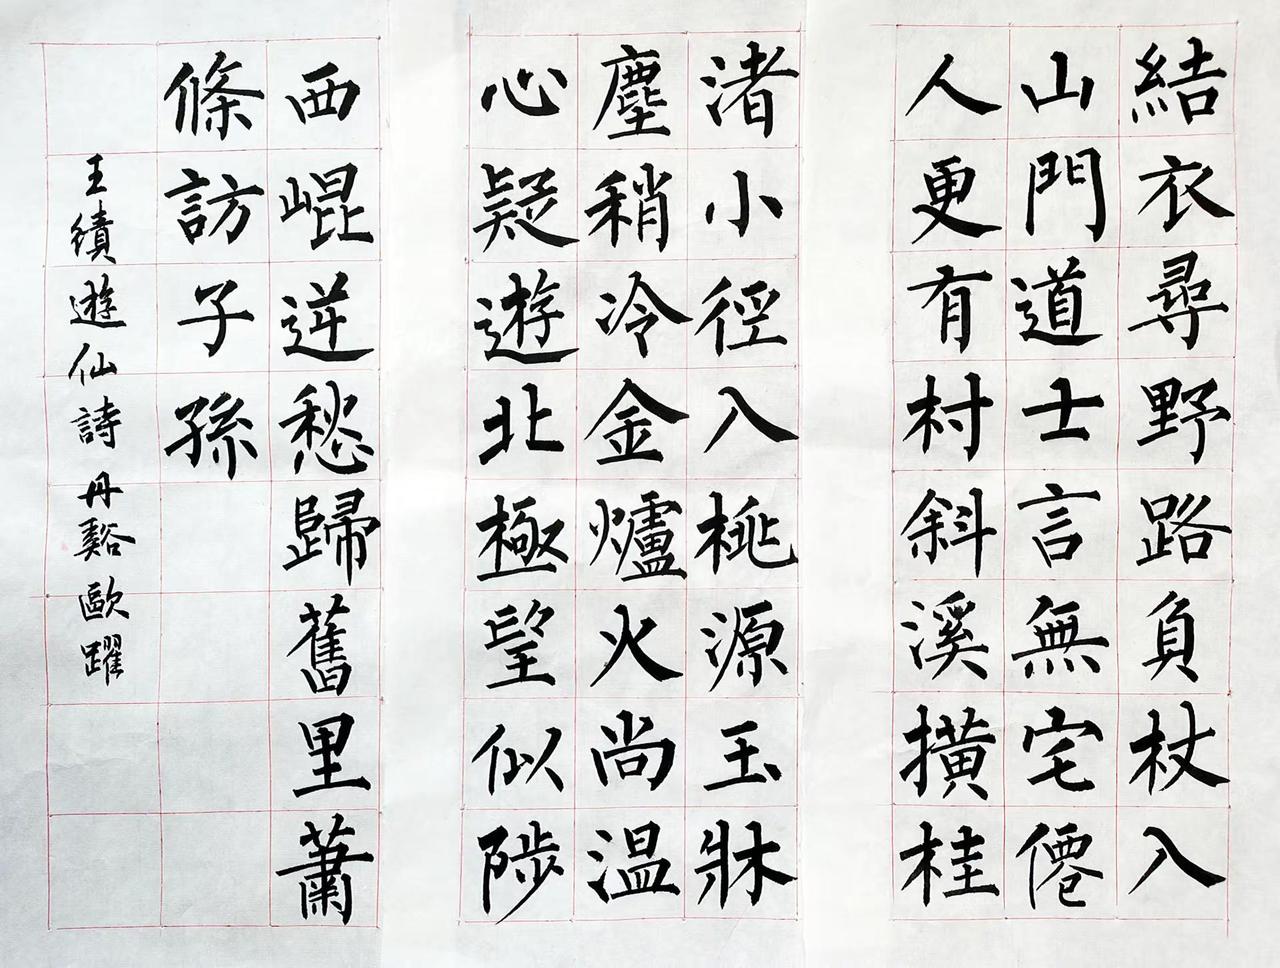 結衣尋野路負杖入
山門道士言無宅僊
人更有村斜溪橫桂
渚小徑入桃源玉牀
塵稍冷金爐火尚温
心疑遊北極望似陟
西崐逆愁歸舊里蕭
條訪子孫
王績遊仙詩丹谿歐躍